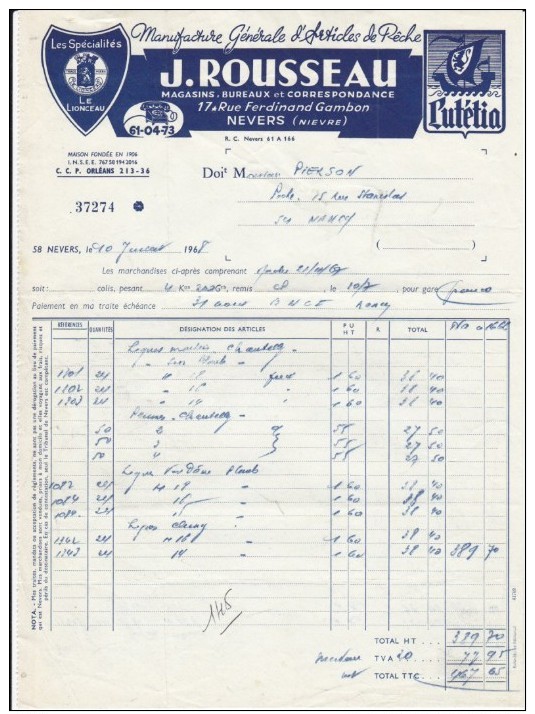 Manufacture Générale d'Articles de Pêche
Les Spécialités
LE LIONCEAU
J. ROUSSEAU
MAGASINS, BUREAUX et CORRESPONDANCE
17, Rue Ferdinand Gambon
NEVERS (NIEVRE)
61-04-73
Lutétia
R. C. Nevers 61 A 166
MAISON FONDÉE EN 1906
I.N.S.E.E. 767 50 194 3016
C. C. P. ORLÉANS 213-36
Doit Monsieur PIERSON
Pêche, 15 rue Stanislas
54 NANCY
37274
58 NEVERS, le 10 Juillet 1968
Les marchandises ci-après comprenant
soit : colis, pesant 4 Kgr remis le 10/7, pour gare franco
Paiement en ma traite échéance 31 août B N C I Nancy
RÉFÉRENCES QUANTITÉS DÉSIGNATION DES ARTICLES P U H T R. TOTAL
Lignes Chantilly
1301 24 18 1 60 38 40
1302 24 16 1 60 38 40
1303 24 14 1 60 38 40
Chantilly
50 2 55 27 50
50 3 55 27 50
50 4 55 27 50
Lignes Vendôme Plomb
24 18 1 60 38 40
1084 24 16 1 60 38 40
24 14 1 60 38 40
Lignes Cluny
1242 24 18 1 60 38 40
1243 24 14 1 60 38 40 389 70
1415
TOTAL HT 389 70
TVA 20 77 95
TOTAL TTC 467 65